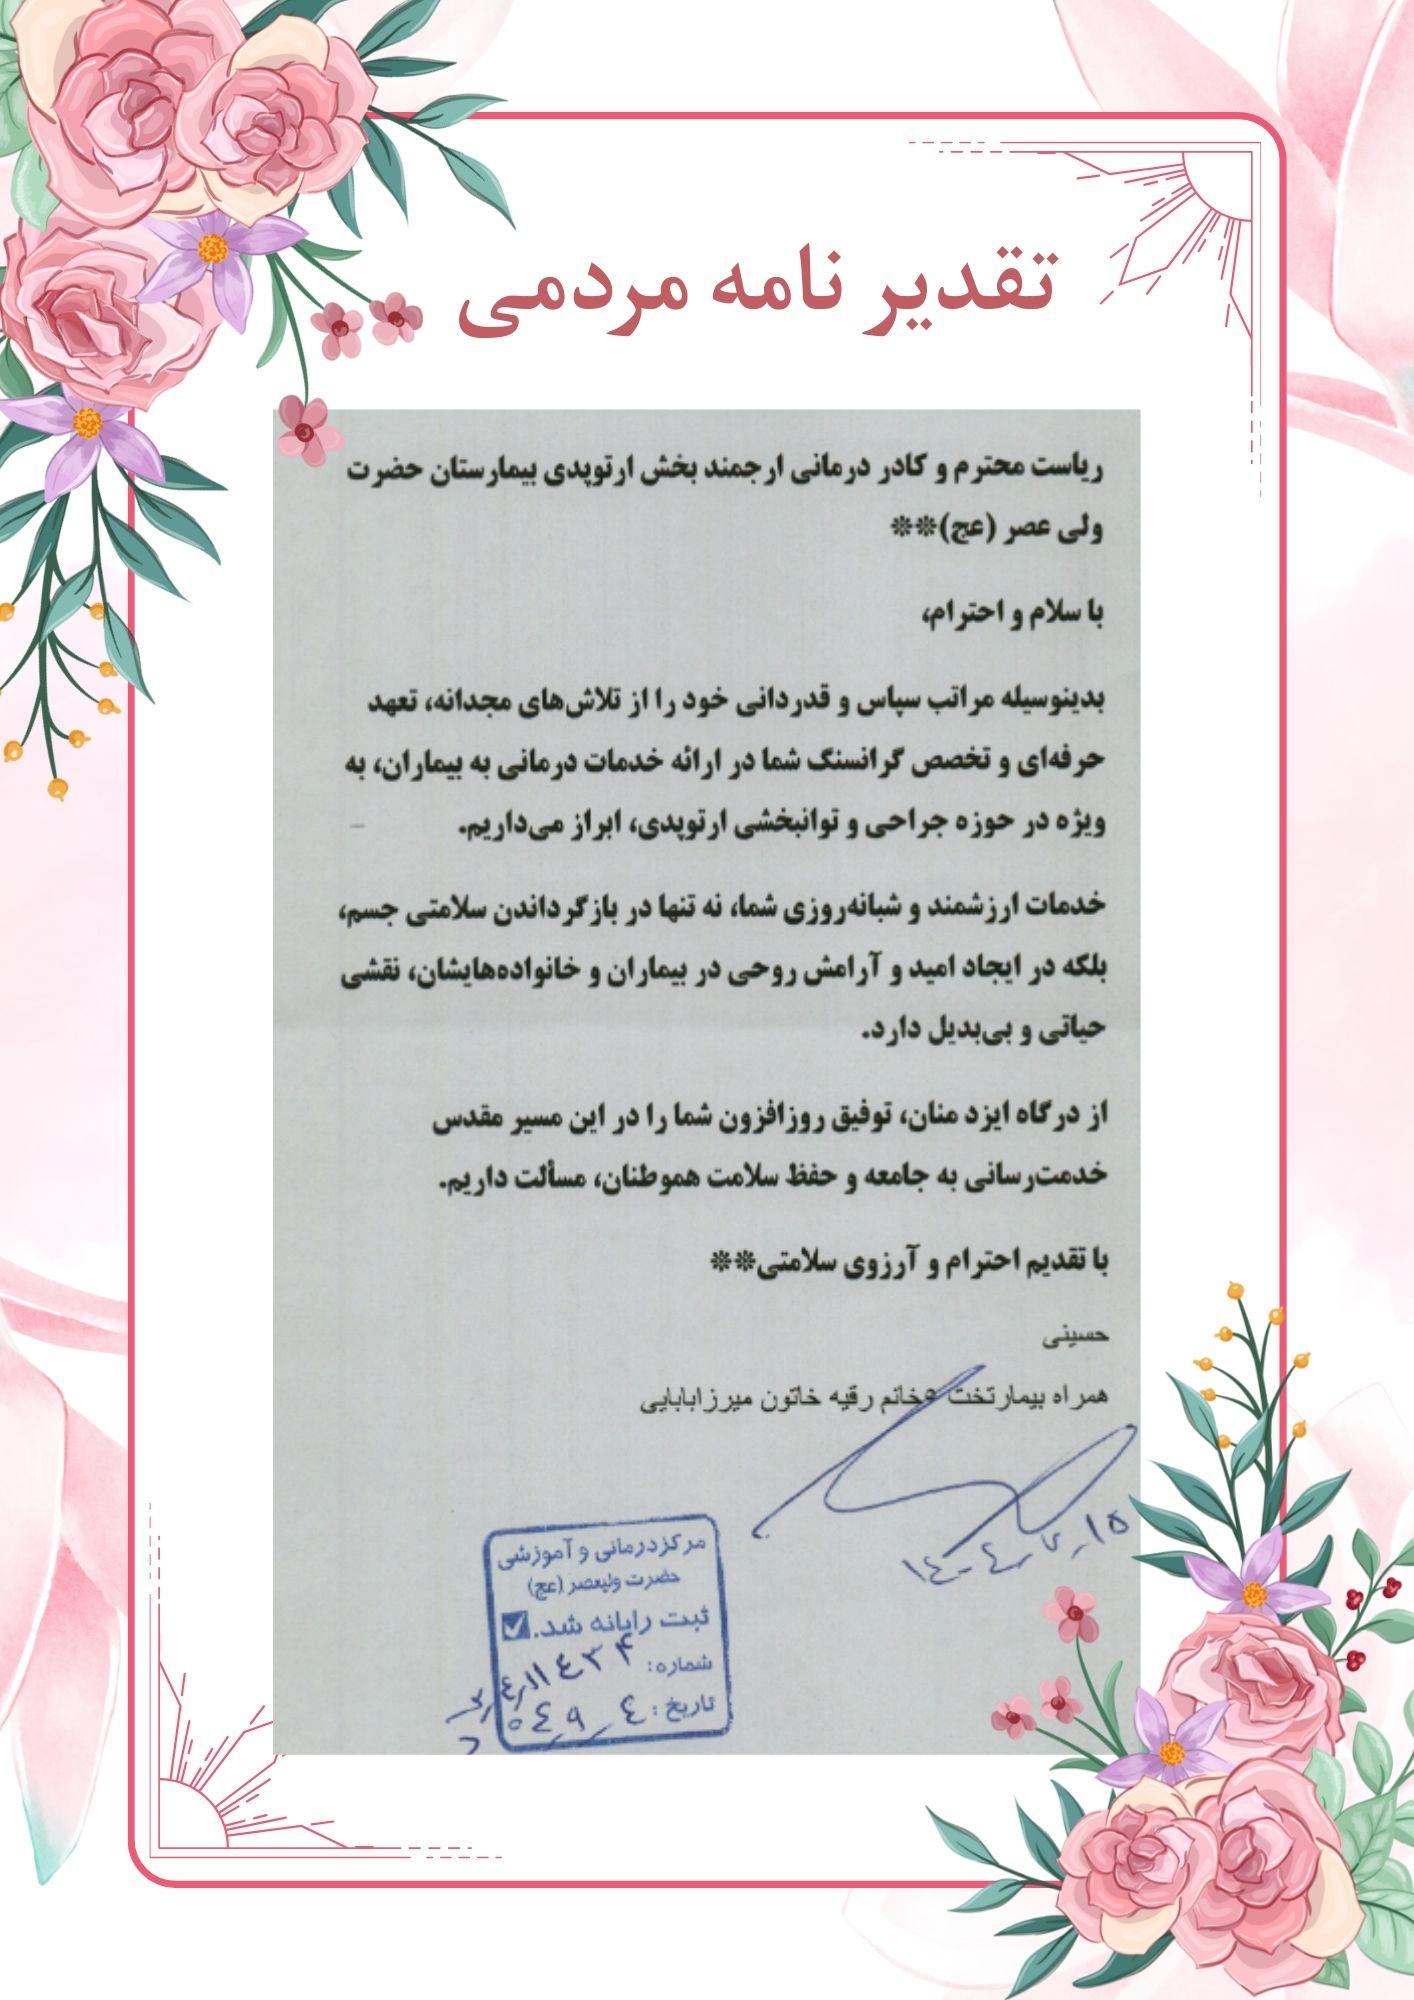 تقدیر نامه مردمی
ریاست محترم و کادر درمانی ارجمند بخش ارتوپدی بیمارستان حضرت
ولی عصر (عج)**
با سلام و احترام،
بدینوسیله مراتب سپاس و قدردانی خود را از تلاش‌های مجدانه، تعهد
حرفه‌ای و تخصص گرانسنگ شما در ارائه خدمات درمانی به بیماران، به
ویژه در حوزه جراحی و توانبخشی ارتوپدی، ابراز می‌داریم.
خدمات ارزشمند و شبانه‌روزی شما، نه تنها در بازگرداندن سلامتی جسم،
بلکه در ایجاد امید و آرامش روحی در بیماران و خانواده‌هایشان، نقشی
حیاتی و بی‌بدیل دارد.
از درگاه ایزد منان، توفیق روزافزون شما را در این مسیر مقدس
خدمت‌رسانی به جامعه و حفظ سلامت هموطنان، مسألت داریم.
با تقدیم احترام و آرزوی سلامتی**
حسینی
همراه بیمارتخت خانم رقیه خاتون میرزابابایی
مرکزدرمانی و آموزشی
حضرت ولیعصر (عج)
ثبت رایانه شد.
شماره:
تاریخ: